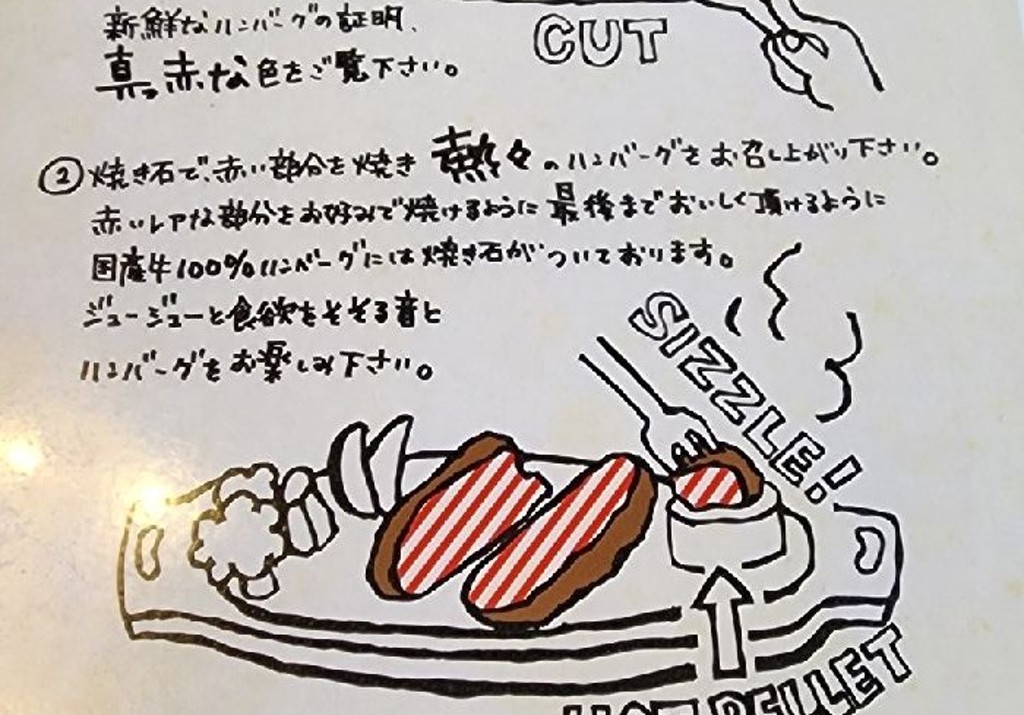 新鮮なハンバーグの証明、
真っ赤な色をご覧下さい。
CUT
② 焼き石で、赤い部分を焼き 熱々のハンバーグをお召し上がり下さい。
赤いレアな部分をお好みで焼けるように 最後までおいしく頂けるように
国産牛100%ハンバーグには焼き石がついております。
ジュージューと食欲をそそる音と
ハンバーグをお楽しみ下さい。
SIZZLE!
HOT PELLET